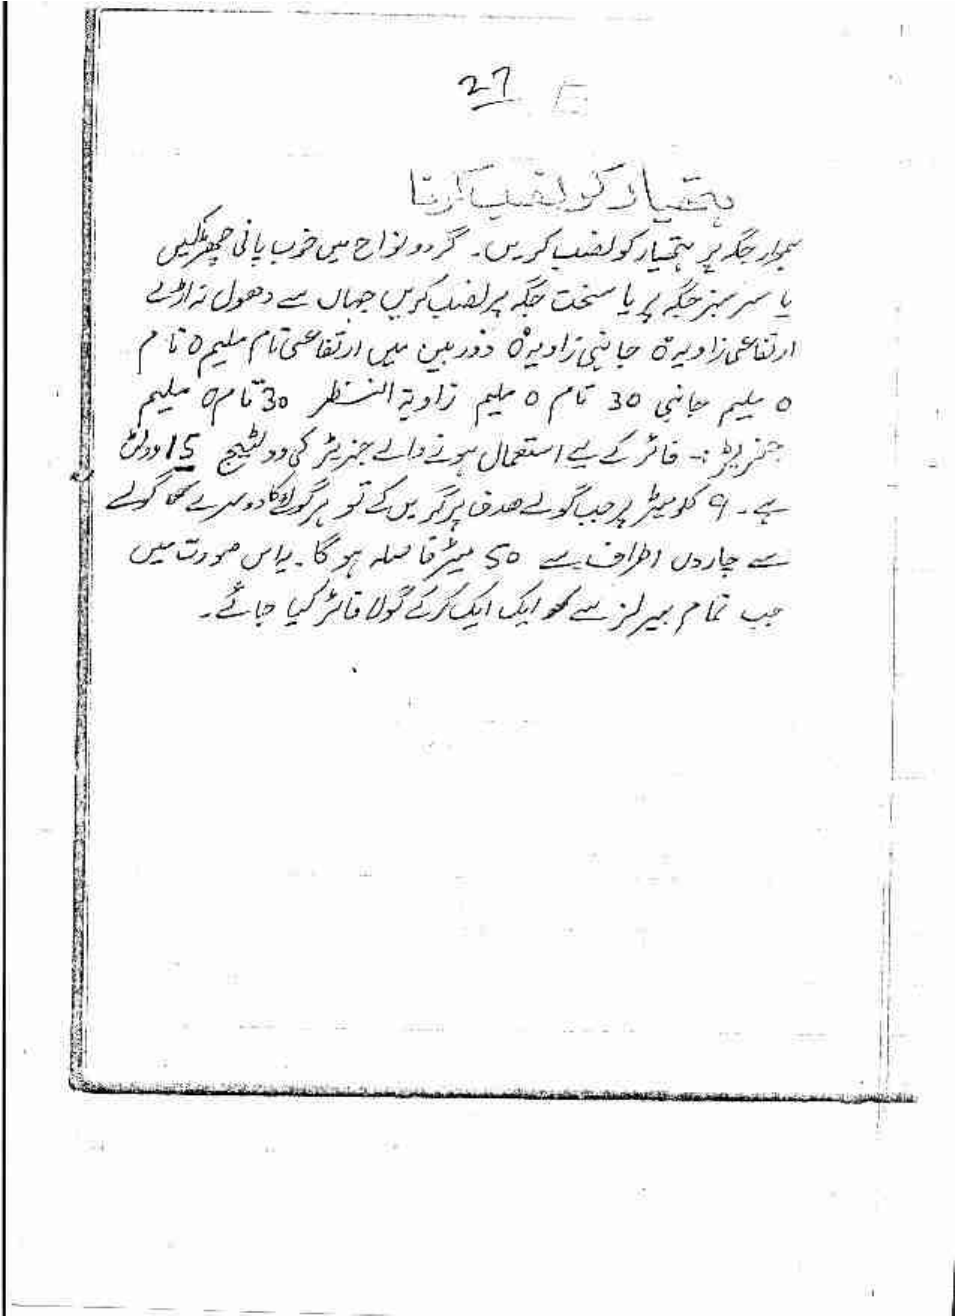 27
ہتھیار کو نصب کرنا
ہموار جگہ پر ہتھیار کو نصب کریں۔ گردونواح میں خوب پانی چھڑکیں
یا سرسبز جگہ پر یا سخت جگہ پر نصب کریں جہاں سے دھول نہ اڑے
ارتفاعی زاویہ 0 جانبی زاویہ 0 دوربین میں ارتفاعی تام ملیم 0 تام
0 ملیم جانبی 30 تام 0 ملیم زاویۃ النظر 30 تام 0 ملیم
جنریٹر :- فائر کے لیے استعمال ہونے والے جنریٹر کی وولٹیج 15 وولٹ
ہے۔ 9 کلومیٹر پر جب گولے ھدف پر گریں گے تو ہر گولے کا دوسرے گولے
سے چاروں اطراف سے 50 میٹر فاصلہ ہو گا۔ یہ اس صورت میں
جب تمام بیرلز سے ایک ایک کر کے گولا فائر کیا جائے۔